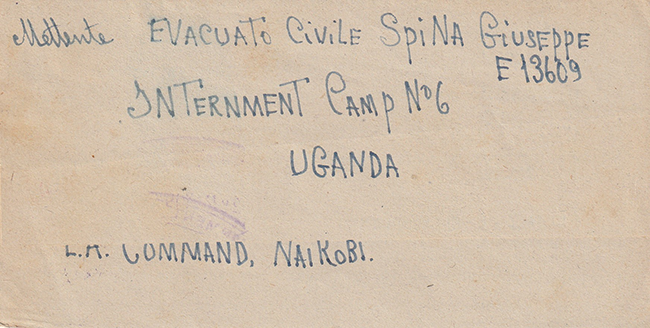 Mettente EVACUATO CIVILE SPINA GIUSEPPE
E 13609
INTERNMENT CAMP No 6
UGANDA
COMMAND, NAIROBI.